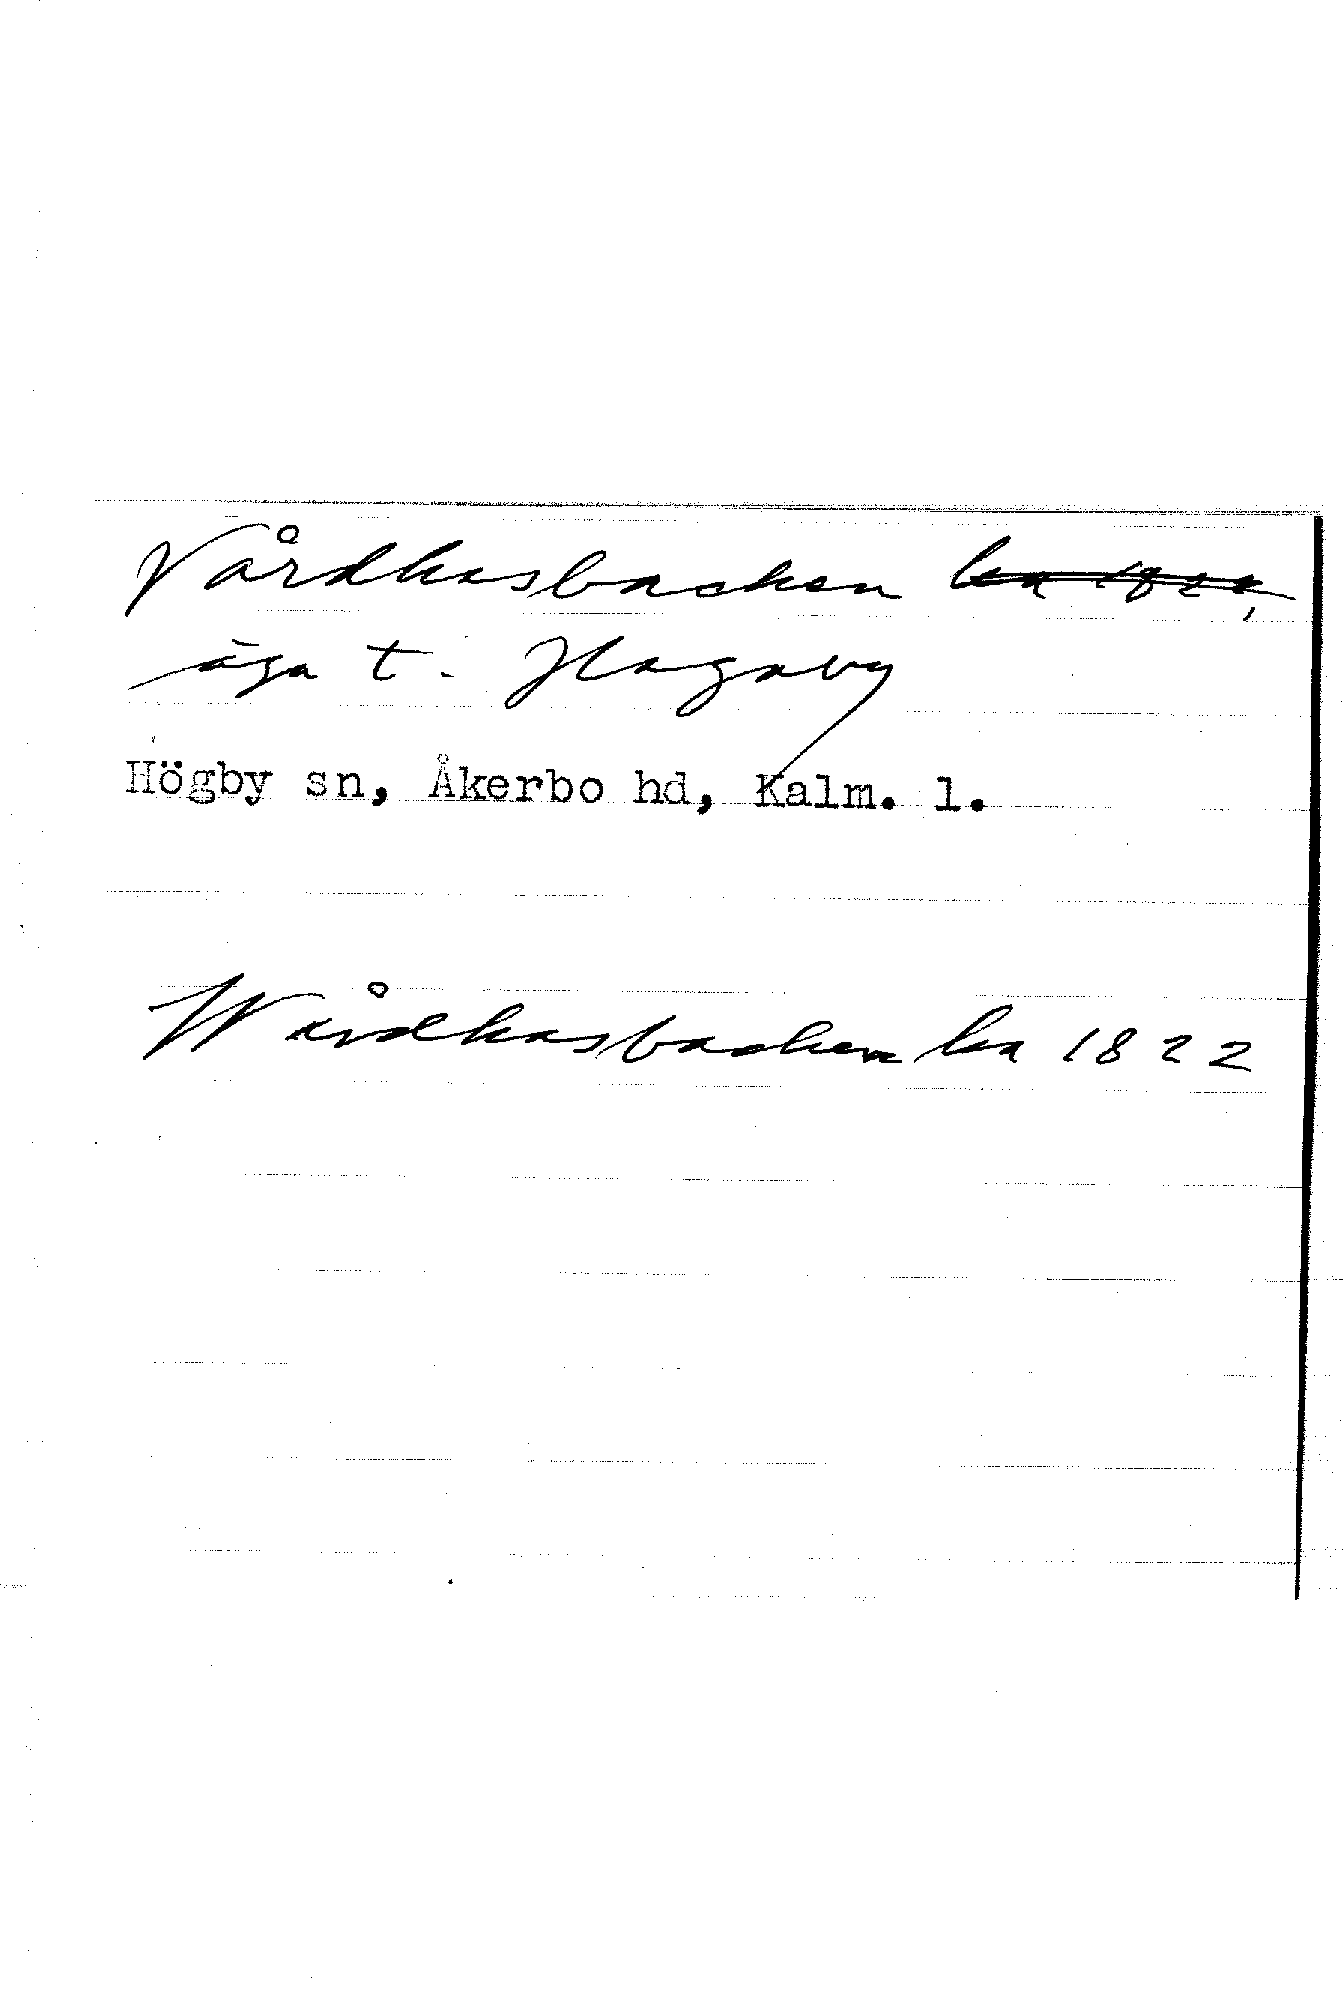 Vårdkasbacken ~~ha 1822~~,
äga t. Hagaby
Högby sn, Åkerbo hd, Kalm. l.
Wårdkasbacken ha 1822